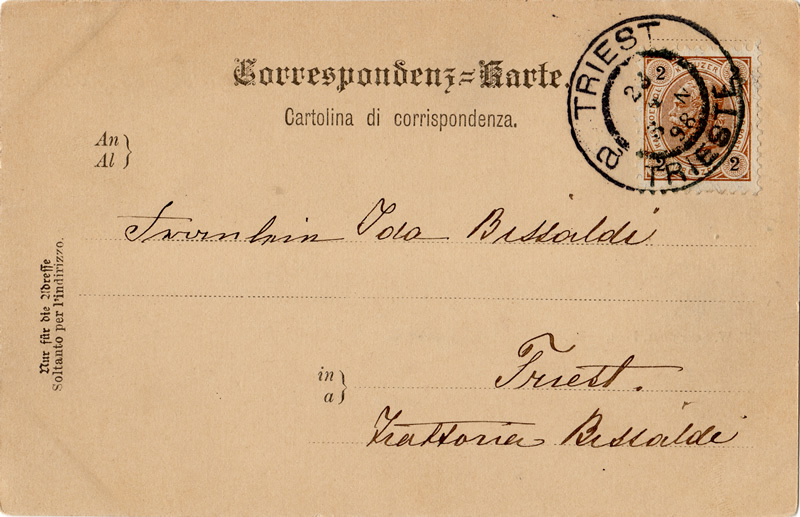 Correspondenz=Karte.
Cartolina di corrispondenza.
TRIEST
TRIESTE
a
98
KREUZER
2
2
2
An
Al
Fraeulein Ida Bissaldi
Nur für die Adresse
Soltanto per l'indirizzo.
in
a
Triest.
Trattoria Bissaldi